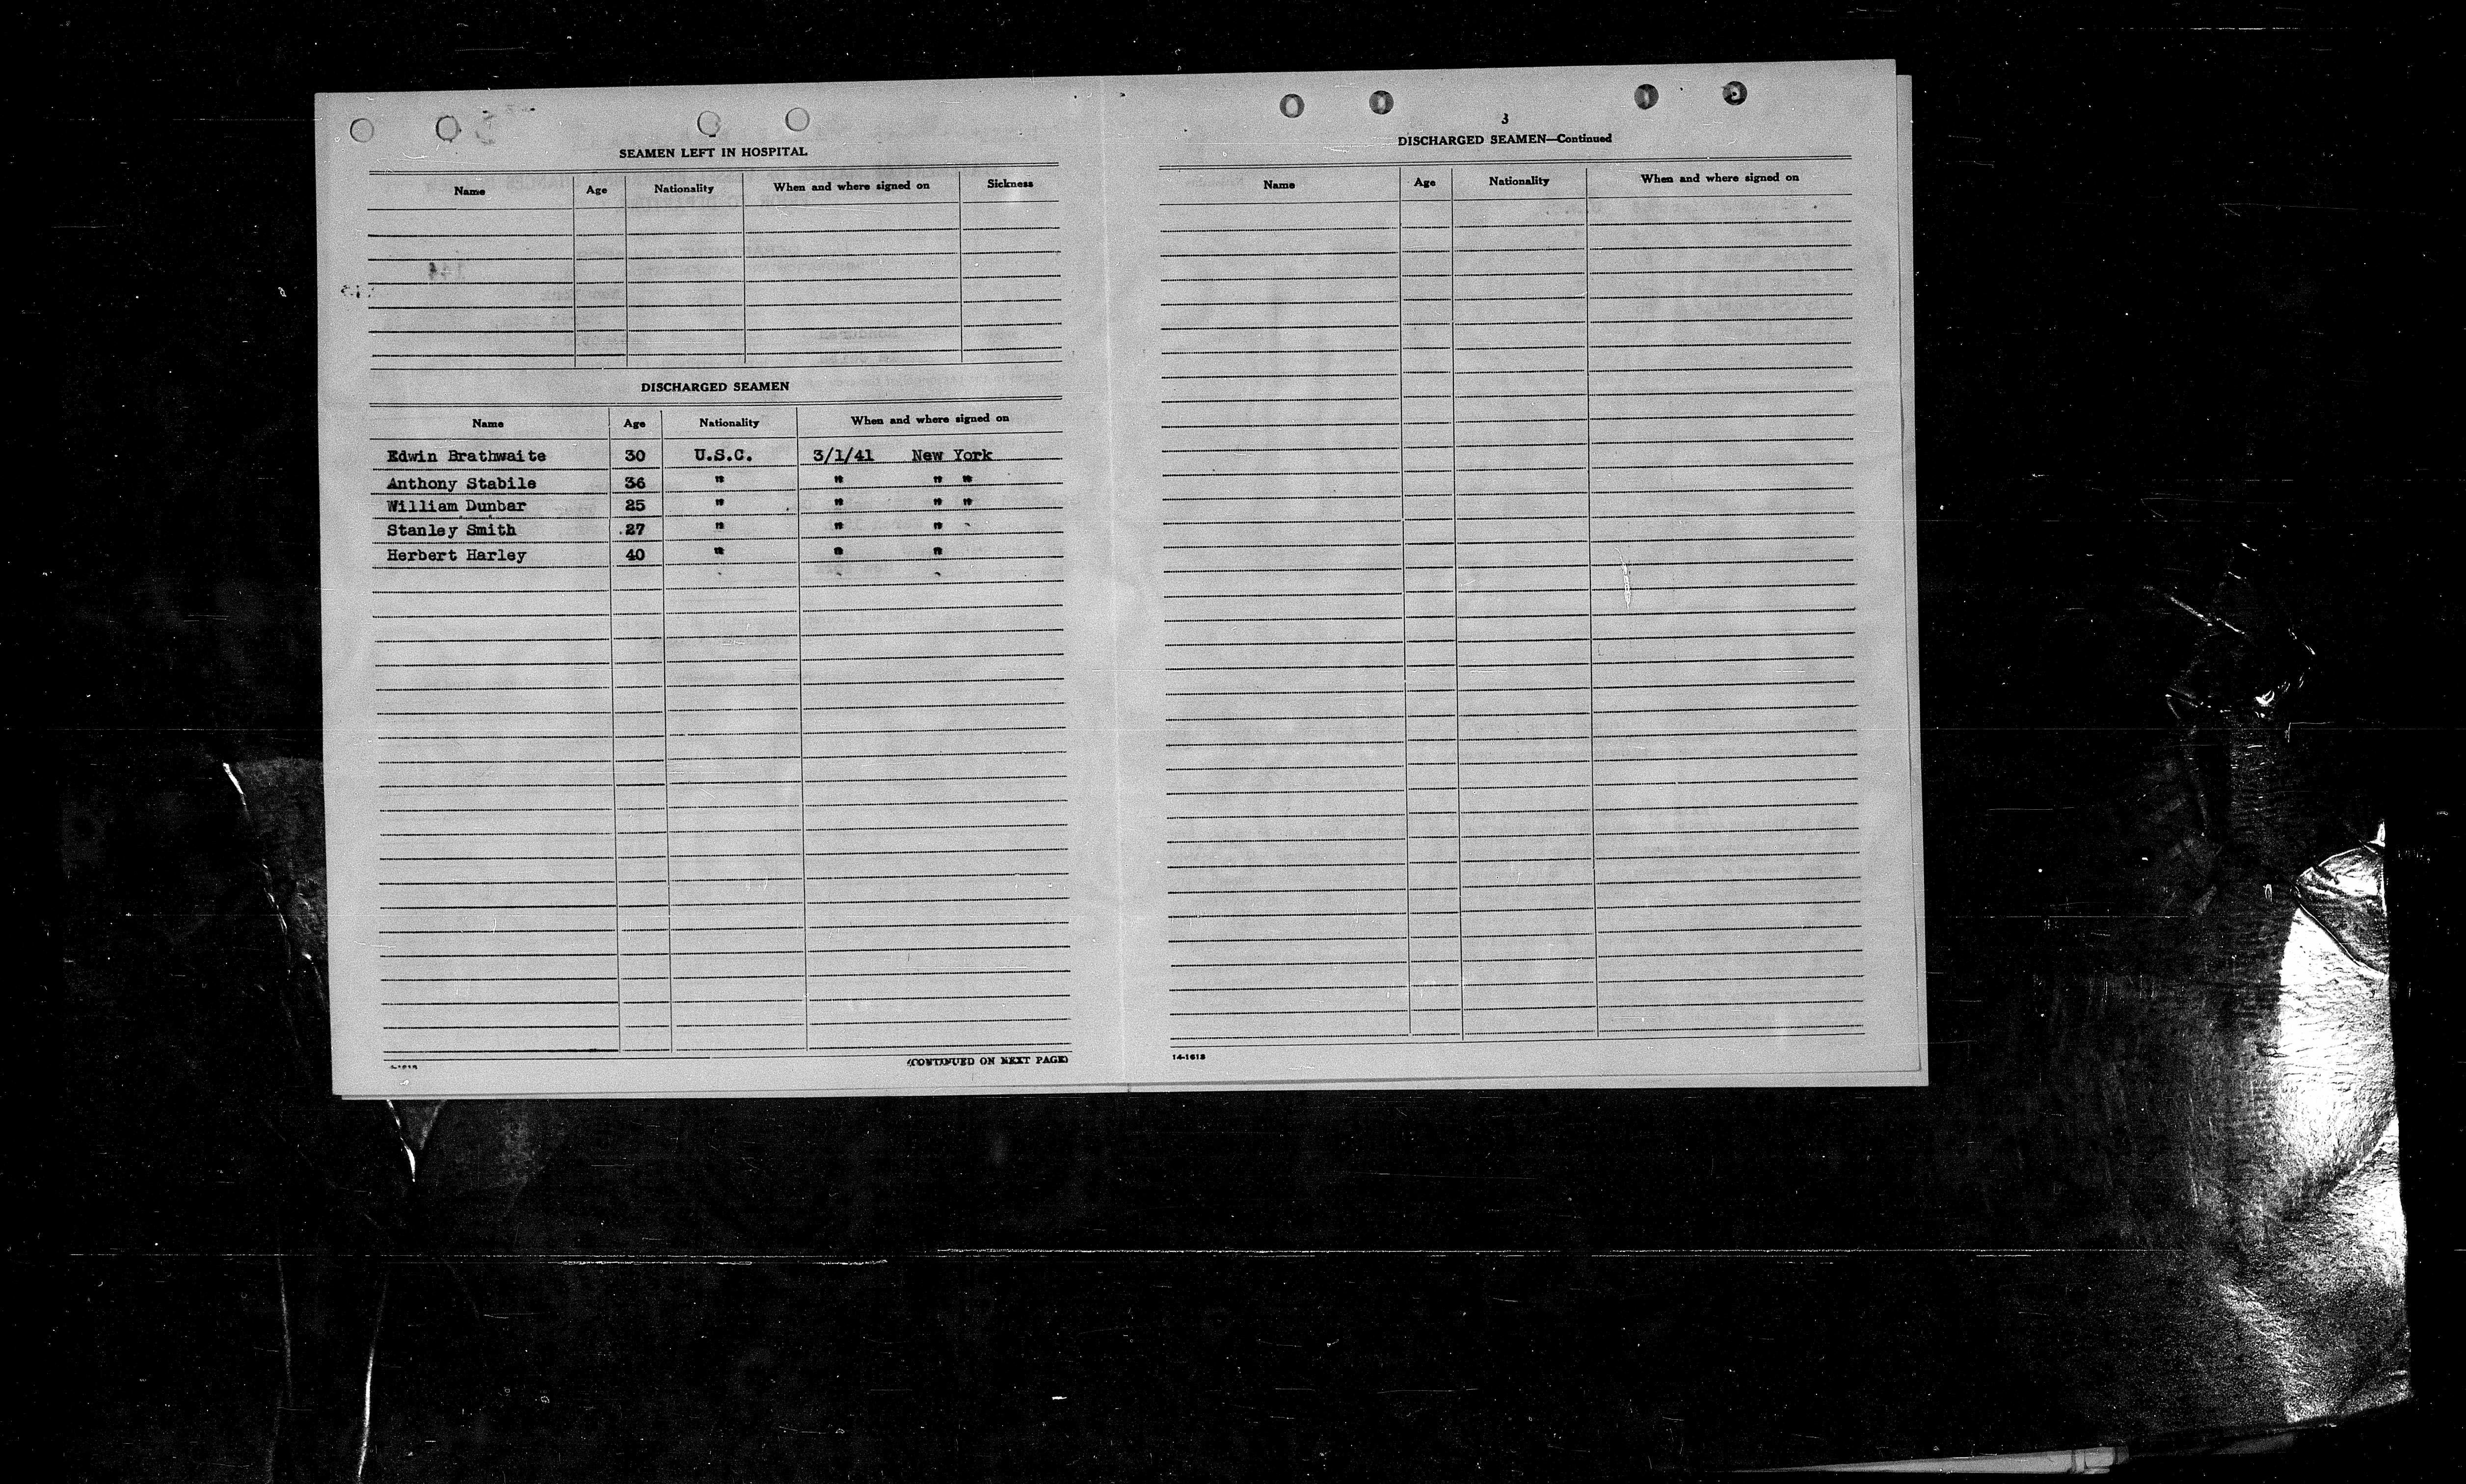 SEAMEN LEFT IN HOSPITAL
Name Age Nationality When and where signed on Sickness
DISCHARGED SEAMEN
Name Age Nationality When and where signed on
Edwin Brathwaite 30 U.S.C. 3/1/41 New York
Anthony Stabile 36 " " " "
William Dunbar 25 " " " "
Stanley Smith 27 " " "
Herbert Harley 40 " " "
(CONTINUED ON NEXT PAGE)
3
DISCHARGED SEAMEN—Continued
Name Age Nationality When and where signed on
14-1613